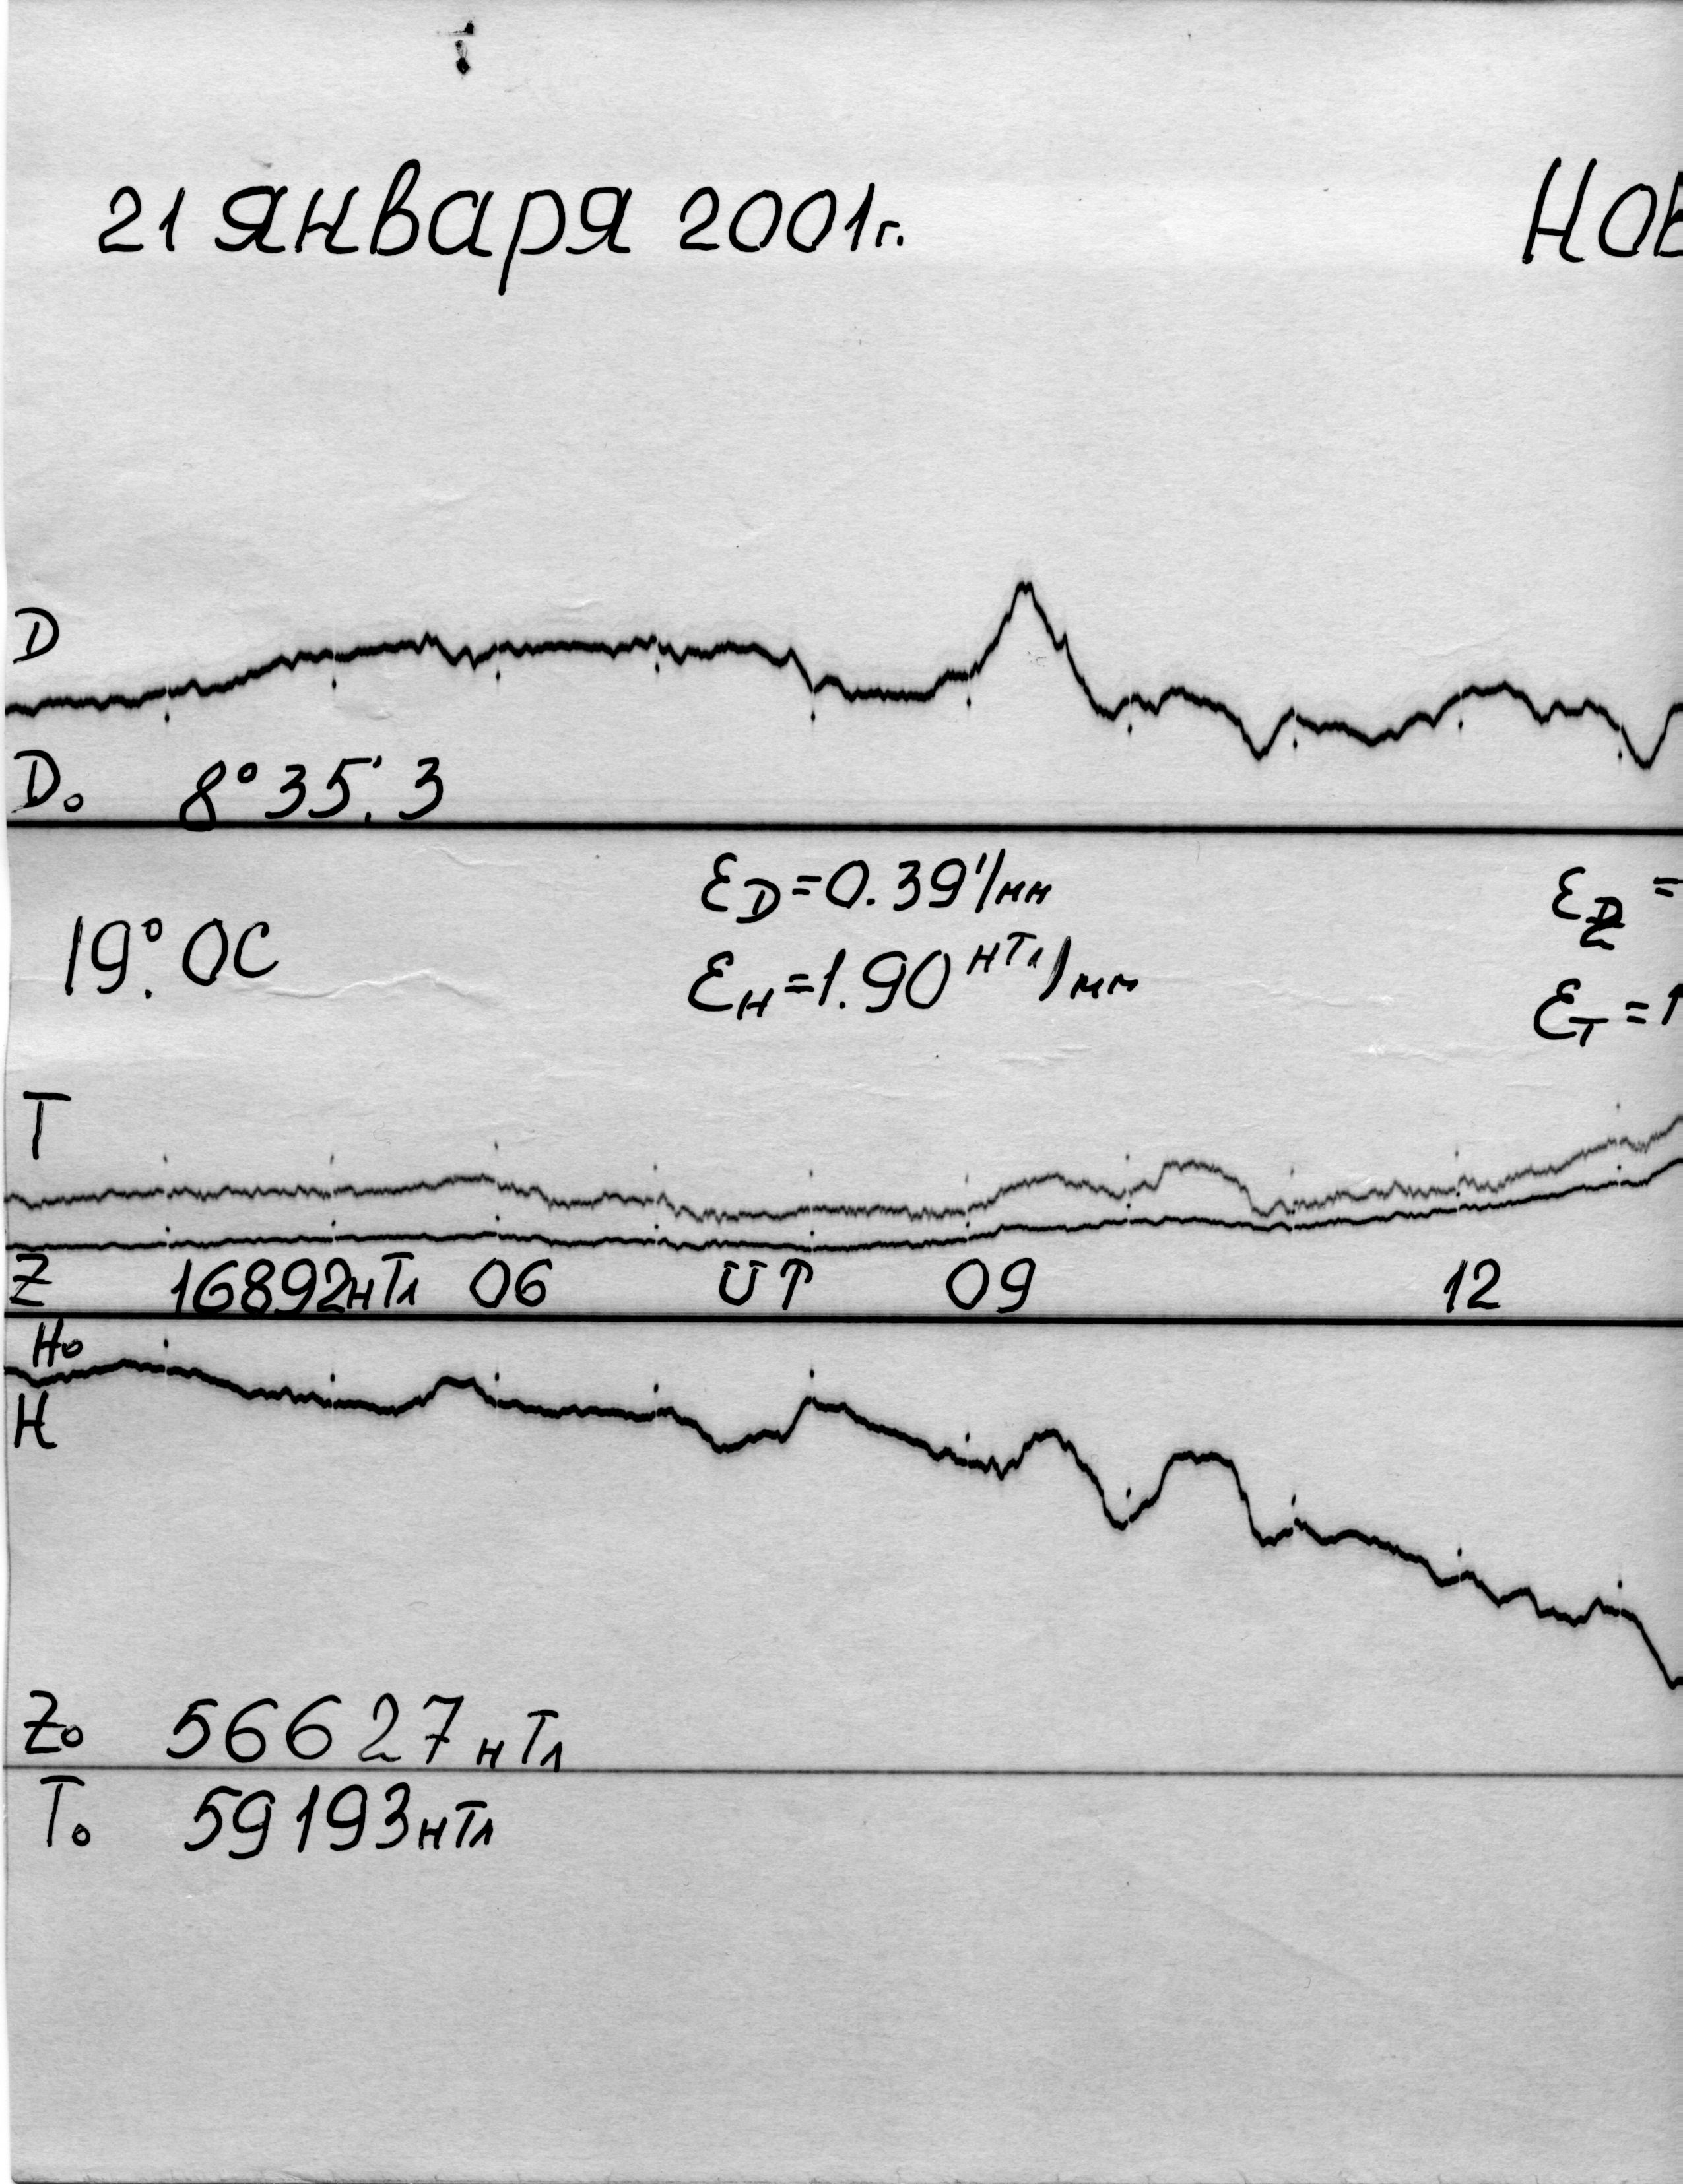 21 января 2001г. НОВ
D
D₀ 8°35'.3
εD=0.39'/мм εZ =
19°.0C
εH=1.90 нТл/мм εT=1
T
Z 16892нТл 06 UT 09 12
H₀
H
Z₀ 56627 нТл
T₀ 59193нТл